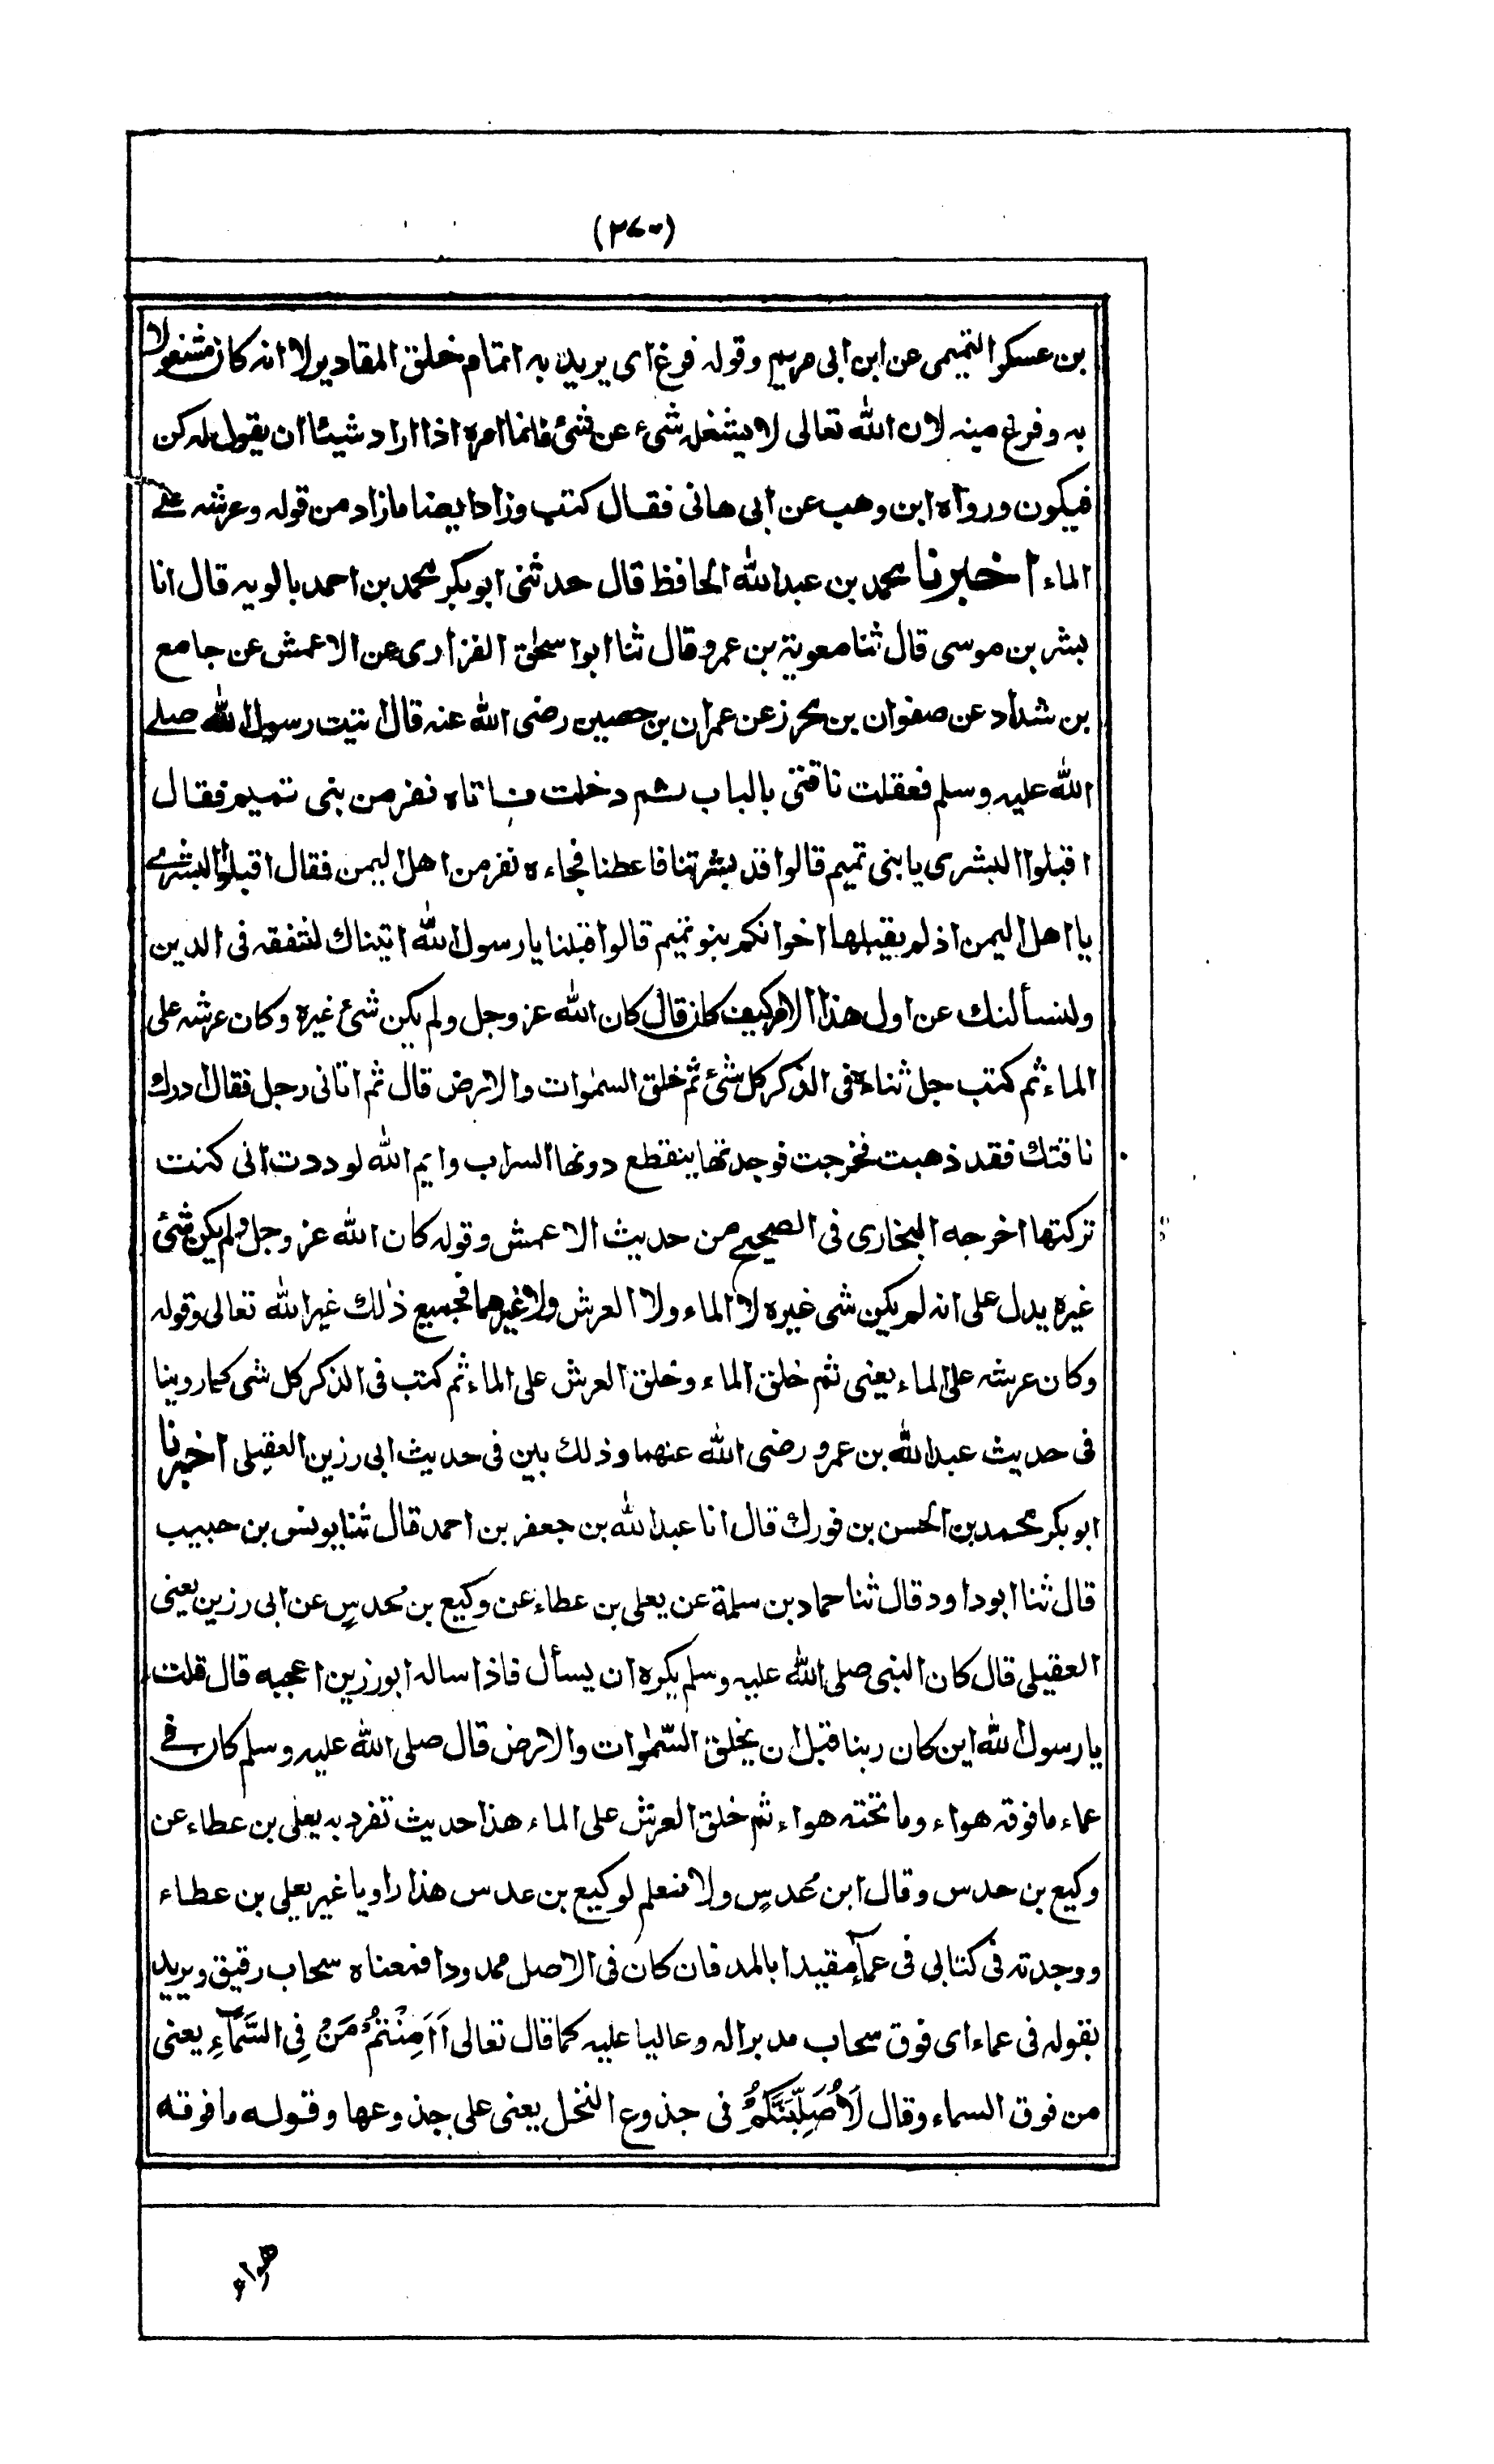 (٢٧٠)
بن عسكر التميمى عن ابن ابى مريم وقوله فرغ اى يريد به اتمام خلق المقادير لا انه كان مشغولا
به وفرغ منه لان الله تعالى لا يشغله شىء عن شئ فانما امره اذا اراد شيئا ان يقول له كن
فيكون ورواه ابن وهب عن ابى هانى فقال كتب وزاد ايضا ما زاد من قوله وعرشه على
الماء اخبرنا محمد بن عبد الله الحافظ قال حدثنى ابو بكر محمد بن احمد بالويه قال انا
بشر بن موسى قال ثنا معوية بن عمرو قال ثنا ابو اسحٰق الفزارى عن الاعمش عن جامع
بن شداد عن صفوان بن محرز عن عمران بن حصين رضى الله عنه قال اتيت رسول الله صلى
الله عليه وسلم فعقلت ناقتى بالباب ثم دخلت فاتاه نفر من بنى تميم فقال
اقبلوا البشرى يا بنى تميم قالوا قد بشرتنا فاعطنا فجاءه نفر من اهل اليمن فقال اقبلوا البشرى
يا اهل اليمن اذ لم يقبلها اخوانكم بنو تميم قالوا قبلنا يا رسول الله اتيناك لنتفقه فى الدين
ولنسألنك عن اول هذا الامر كيف كان قال كان الله عز وجل ولم يكن شئ غيره وكان عرشه على
الماء ثم كتب جل ثناءه فى الذكر كل شئ ثم خلق السمٰوات والارض قال ثم اتانى رجل فقال ادرك
ناقتك فقد ذهبت فخرجت فوجدتها ينقطع دونها السراب وايم الله لوددت انى كنت
تركتها اخرجه البخارى فى الصحيح من حديث الاعمش وقوله كان الله عز وجل ولم يكن شئ
غيره يدل على انه لم يكن شى غيره لا الماء ولا العرش ولا غيرهما فجميع ذٰلك غير الله تعالى وقوله
وكان عرشه على الماء يعنى ثم خلق الماء وخلق العرش على الماء ثم كتب فى الذكر كل شى كما روينا
فى حديث عبد الله بن عمرو رضى الله عنهما وذلك بين فى حديث ابى رزين العقيلى اخبرنا
ابو بكر محمد بن الحسن بن فورك قال انا عبد الله بن جعفر بن احمد قال ثنا يونس بن حبيب
قال ثنا ابو داود قال ثنا حماد بن سلمة عن يعلى بن عطاء عن وكيع بن حدس عن ابى رزين يعنى
العقيلى قال كان النبى صلى الله عليه وسلم يكره ان يسأل فاذا ساله ابو رزين اعجبه قال قلت
يا رسول الله اين كان ربنا قبل ان يخلق السّمٰوات والارض قال صلى الله عليه وسلم كان فى
عماء ما فوقه هواء وما تحته هواء ثم خلق العرش على الماء هذا حديث تفرد به يعلى بن عطاء عن
وكيع بن حدس وقال ابن عدس ولا نعلم لوكيع بن عدس هذا راويا غير يعلى بن عطاء
ووجدته فى كتابى فى عمآء مقيدا بالمد فان كان فى الاصل ممدودا فمعناه سحاب رقيق ويريد
بقوله فى عماء اى فوق سحاب مدبرا له وعاليا عليه كما قال تعالى اَاَمِنْتُمْ مَنْ فِى السَّمَآءِ يعنى
من فوق السماء وقال لَاُصَلِّبَنَّكُمْ فى جذوع النخل يعنى على جذوعها وقوله ما فوقه
هواء